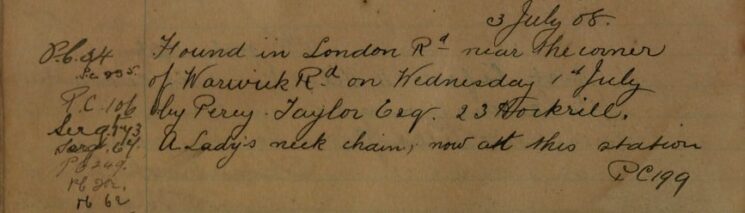 3 July 08.
P.C. 34
P.C. 335.
P.C. 106
Serg. 43
Serg. 67.
PC 249.
PC 202.
PC 62
Found in London Rd near the corner
of Warwick Rd on Wednesday 1st July
by Percy Taylor Esq. 23 Hockrill.
A Lady's neck chain, now att this station
PC 199